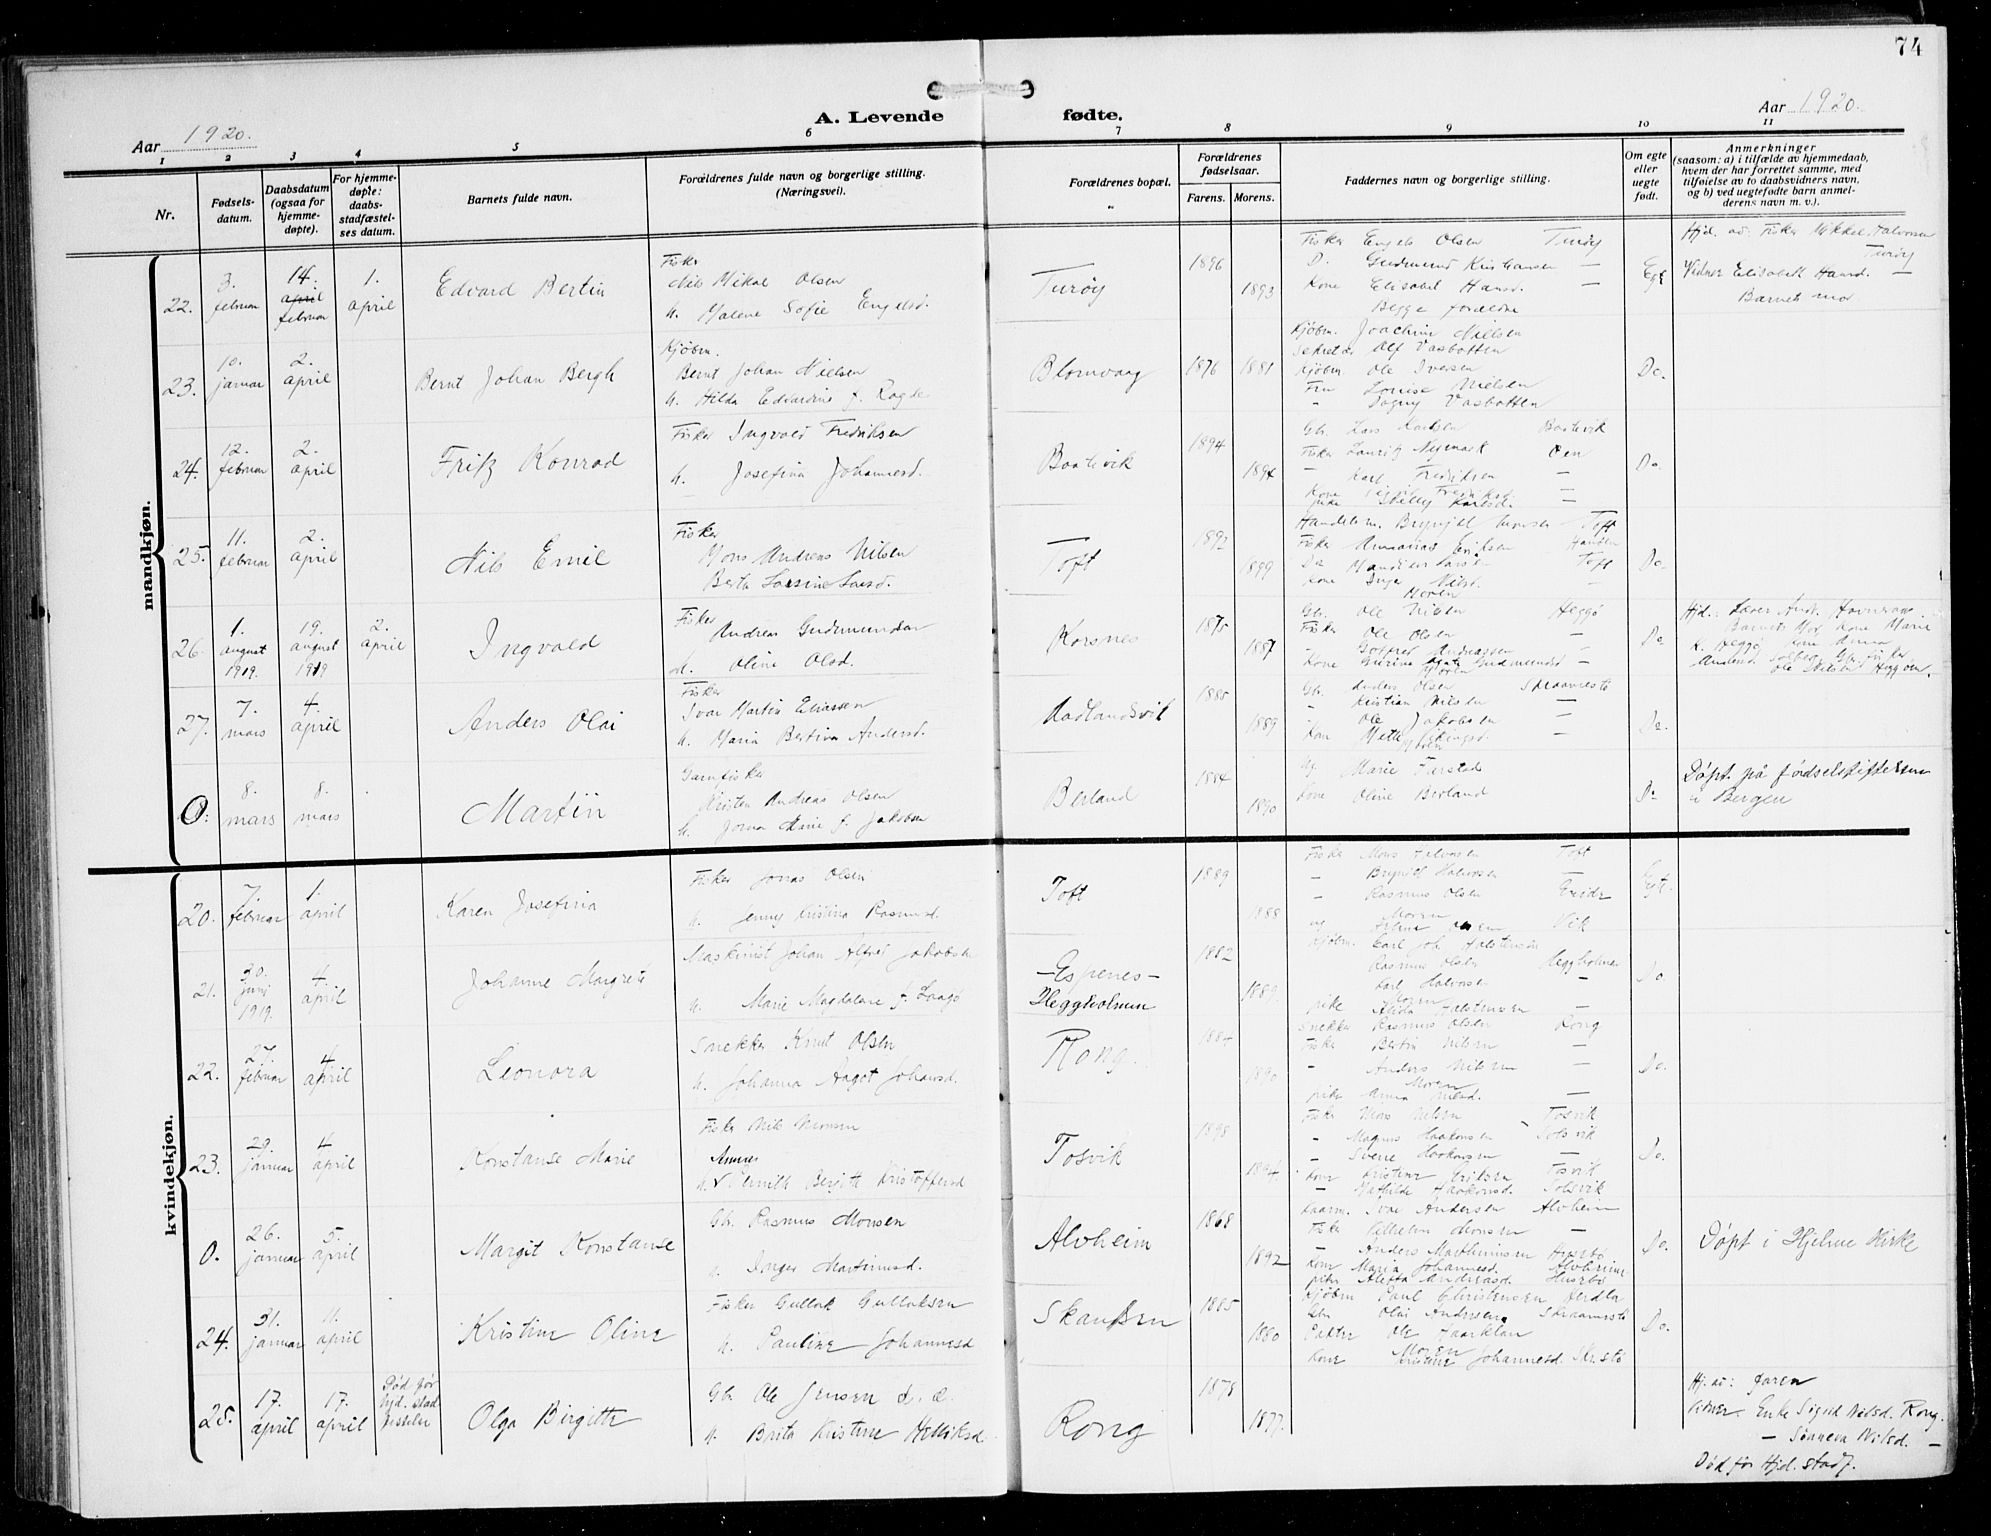 74
Aar 1920.
A. Levende fødte.
Aar 1920.
1 2 3 4 5 6 7 8 9 10 11
Nr.
Fødsels-
datum.
Daabsdatum
(ogsaa for
hjemme-
døpte).
For hjemme-
døpte:
daabs-
stadfæstel-
ses datum.
Barnets fulde navn.
Forældrenes fulde navn og borgerlige stilling.
(Næringsvei).
Forældrenes bopæl.
Forældrenes
fødselsaar.
Farens. Morens.
Faddernes navn og borgerlige stilling.
Om egte
eller
uegte
født.
Anmerkninger
(saasom: a) i tilfælde av hjemmedaab,
hvem der har forrettet samme, med
tilføielse av to daabsvidners navn,
og b) ved uegtefødte barn anmel-
derens navn m. v.).
mandkjøn.
22.
3.
februar
14.
april
februar
1.
april
Edvard Bertin
Fisker
Nils Mikal Olsen
h. Malene Sofie Engelsd.
Turøy
1896
1893
Fisker Engels Olsen Turøy
D. Gudmund Kristiansen —
Kone Elisabet Hansd. —
Begge forældre
Egte
Hjd. av: Fisker Mikkel Halvorsen
Turøy
Vidner Elisabet Hansd. —
Barnets mor
23.
10.
januar
2.
april
Bernt Johan Bergh
Kjøbm.
Bernt Johan Nielsen
h. Hilda Edvardine f. Ragde
Blomvaag
1876 1881
Kjøbm. Joachim Nielsen
Sekretær Alf Vasbotten
Kjøbm Ole Iversen
Fru Louise Nielsen
" Dagny Vasbotten
Do.
24.
12.
februar
2.
april
Fritz Konrad
Fisker Ingvald Fredriksen
h. Josefina Johannesd.
Baatsvik
1894
1894
Gbr. Lars Baatsvik
Fisker Lauritz Nymark Øen
— Karl Fredriksen —
Kone Fredriksd. —
pike Karlsd. —
Do.
25.
11.
februar
2.
april
Nils Emil
Fisker
Mons Andreas Nilsen
Berta Larsine Larsd.
Toft
1892
1899
Handelsm. Brynjel Monsen Toft
Fisker Ananias Eriksen
Do Larsen Toft
Kone Inga Nilsd. —
Moren
Do.
26.
1.
august
1919.
19.
august
1919
2.
april
Ingvald
Fisker
Andreas Gudmundsen
h. Oline Olsd.
Korsnes
1875
1887
Gbr. Ole Nilsen Heggø
Fisker Ole Olsen —
— Gotfred Andreassen
Kone Gurine Gudmundsd —
Moren
Do
Hjd.: Lærer And.
Barnets Mor, Kone Marie
K. Heggø, Kone Anna
27.
7.
mars
4.
april
Anders Olai
Fisker
Ivar Martin Eliassen
h. Maria Bertina Andersd.
Aadlandsvik
1885
1889
Gbr. Anders Olsen
" Kristian Nilsen —
" Ole Jakobsen —
Kone Mette Vikingsd. —
Moren
Do.
0:
8.
mars
8.
mars
Martin
Garnfisker
Kristen Andreas Olsen
h. Jorna Marie f. Jakobsen
Berland
1884
1890
Ug. Marie Turstad
Kone Oline Berland
Do
Døpt på fødselstiftelsen
i Bergen
kvindekjøn.
20.
7.
februar
1.
april
Karen Josefina
Fisker Jonas Olsen
h. Jenny Kristina Rasmusd.
Toft
1889
1888
Fisker Mons Halvorsen Toft
— Brynjel Halvorsen —
— Rasmus Olsen
Moren
Vik
Egt.
21.
30.
juni
1919.
4.
april
Johanne Margrete
Maskinist Johan Alfred Jakobsen
h. Marie Magdalene f. Laagø
—Espenes—
Heggholmen
1882
1889
Kjøbm. Carl Joh. Halstensen
Rasmus Olsen Heggholmen
Karl Halvorsen —
Moren
pike Alida Halstensen —
Do.
22.
27.
februar
4
april
Leonora
Snekker Knut Olsen
h. Johanna Aagot Johansd.
Rong
1884
1890
Snekker Rasmus Olsen Rong
Fisker Bertin Nilsen —
" Anders Nilsen —
Moren
pike Anna Nilsd. —
Do.
23.
29.
januar
4
april
Konstanse Marie
Fisker Nils Monsen
h. Pernille Bergitte Kristoffersd
Tosvik
1898
1894.
Fisker Mons Nilsen Tosvik
" Magnus Haakonsen Tolsvik
" Sverre Haakonsen —
Kone Kristine Eriksen Tosvik
— Mathilde Haakonsd. Tolsvik
Do.
0.
26.
januar
5.
april
Margit Konstanse
Gbr. Rasmus Monsen
h. Inger Martinusd.
Alvheim
1868
1892
Ivar Andersen Alvheim
Fisker Vilhelm Monsen —
— Anders Marthinussen Husebø
Kone Maria Johannesd. Alvheim
pike Aletta Andreasd. Husebø
Do.
Døpt i Hjelme Kirke
24.
31.
januar
11.
april
Kristine Oline
Fisker Gullak Gullaksen
h. Pauline Johannesd
Skandsen
1885
1880
Kjøbm Paul Christensen Herdla
Gbr. Olai Andersen
Ole Haarklau
Moren
Kone Kristine Johannesd. Skr.stø
Do.
25.
17.
april
17.
april
Død før
hjd. stad-
festelse
Olga Birgitte
Gbr. Ole Jensen d. æ.
h. Brita Kristine Helliksd.
Rong
1878
1877.
Hj. av: faren
Vidner. Enke Sigrid Nilsd. Rong.
— Sønneva Nilsd. —
Død før Hjd. stadf.